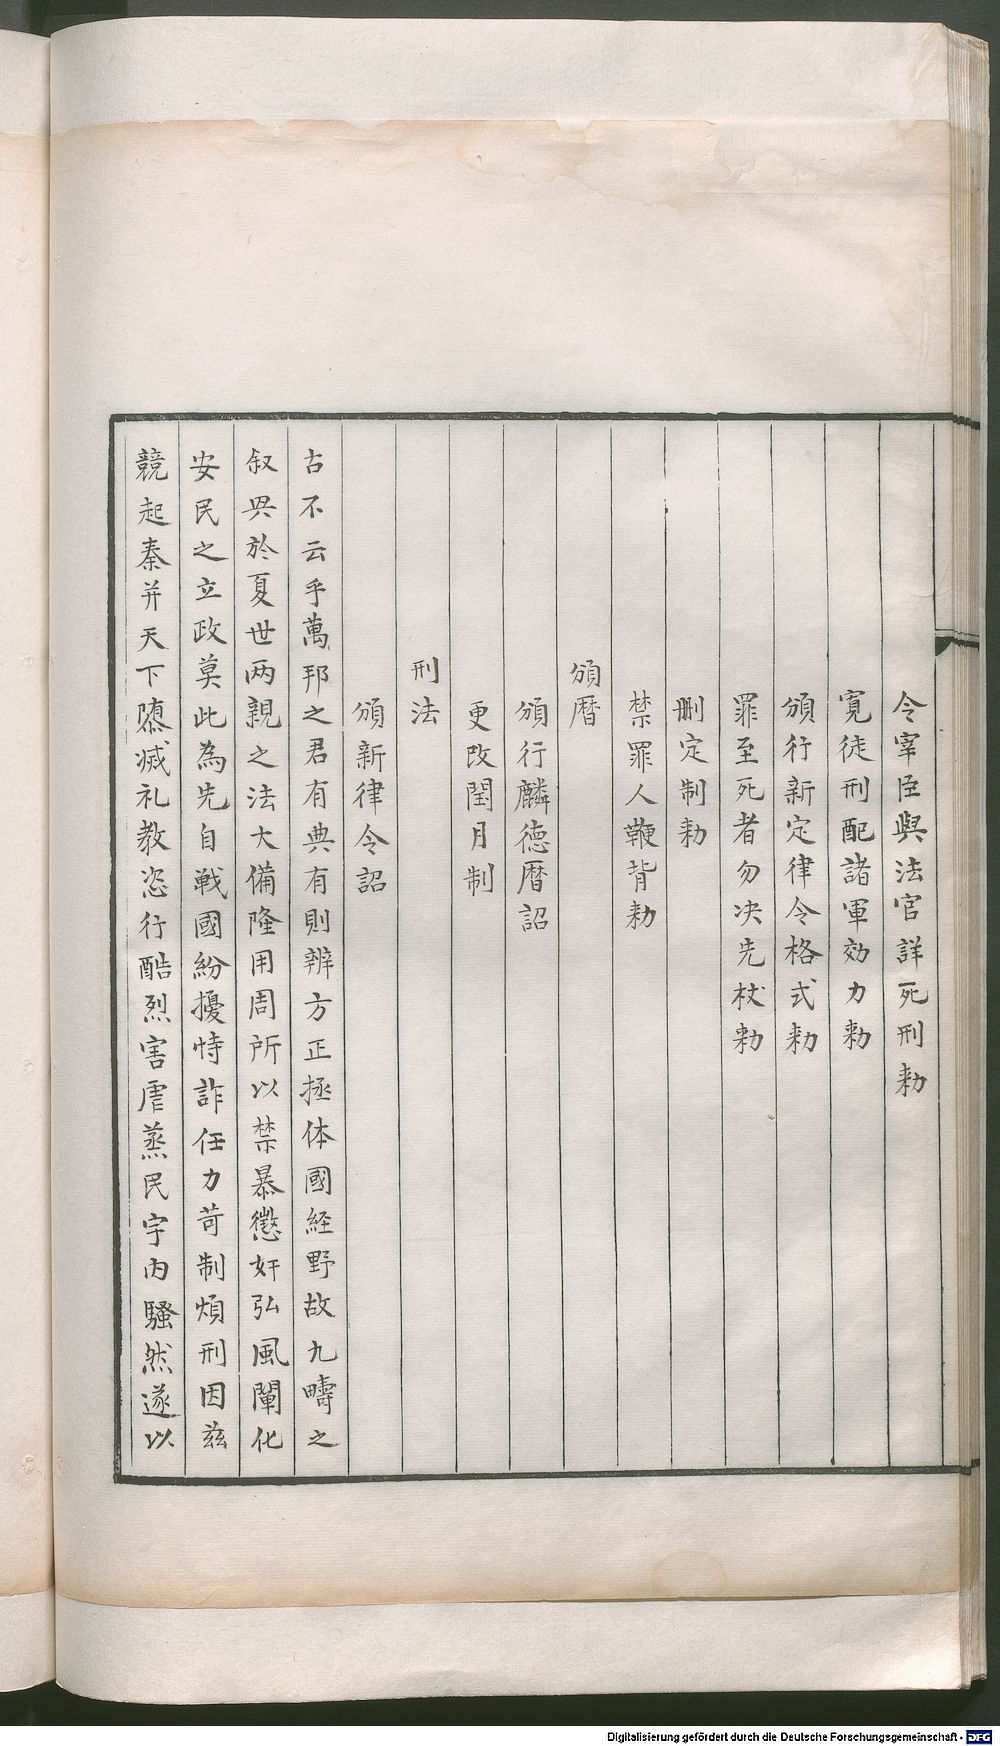 令宰臣與法官詳死刑勅
寛徒刑配諸軍効力勅
頒行新定律令格式勅
罪至死者勿决先杖勅
刪定制勅
禁罪人鞭背勅
頒暦
頒行麟德暦詔
更改閏月制
刑法
頒新律令詔
古不云乎萬邦之君有典有則辨方正拯体國経野故九疇之
叙興於夏世两親之法大備隆用周所以禁暴懲奸弘風闡化
安民之立政莫此為先自戦國紛擾恃詐任力苛制煩刑因兹
競起秦并天下隳滅礼教恣行酷烈害虐蒸民宇内騷然遂以
Digitalisierung gefördert durch die Deutsche Forschungsgemeinschaft - DFG